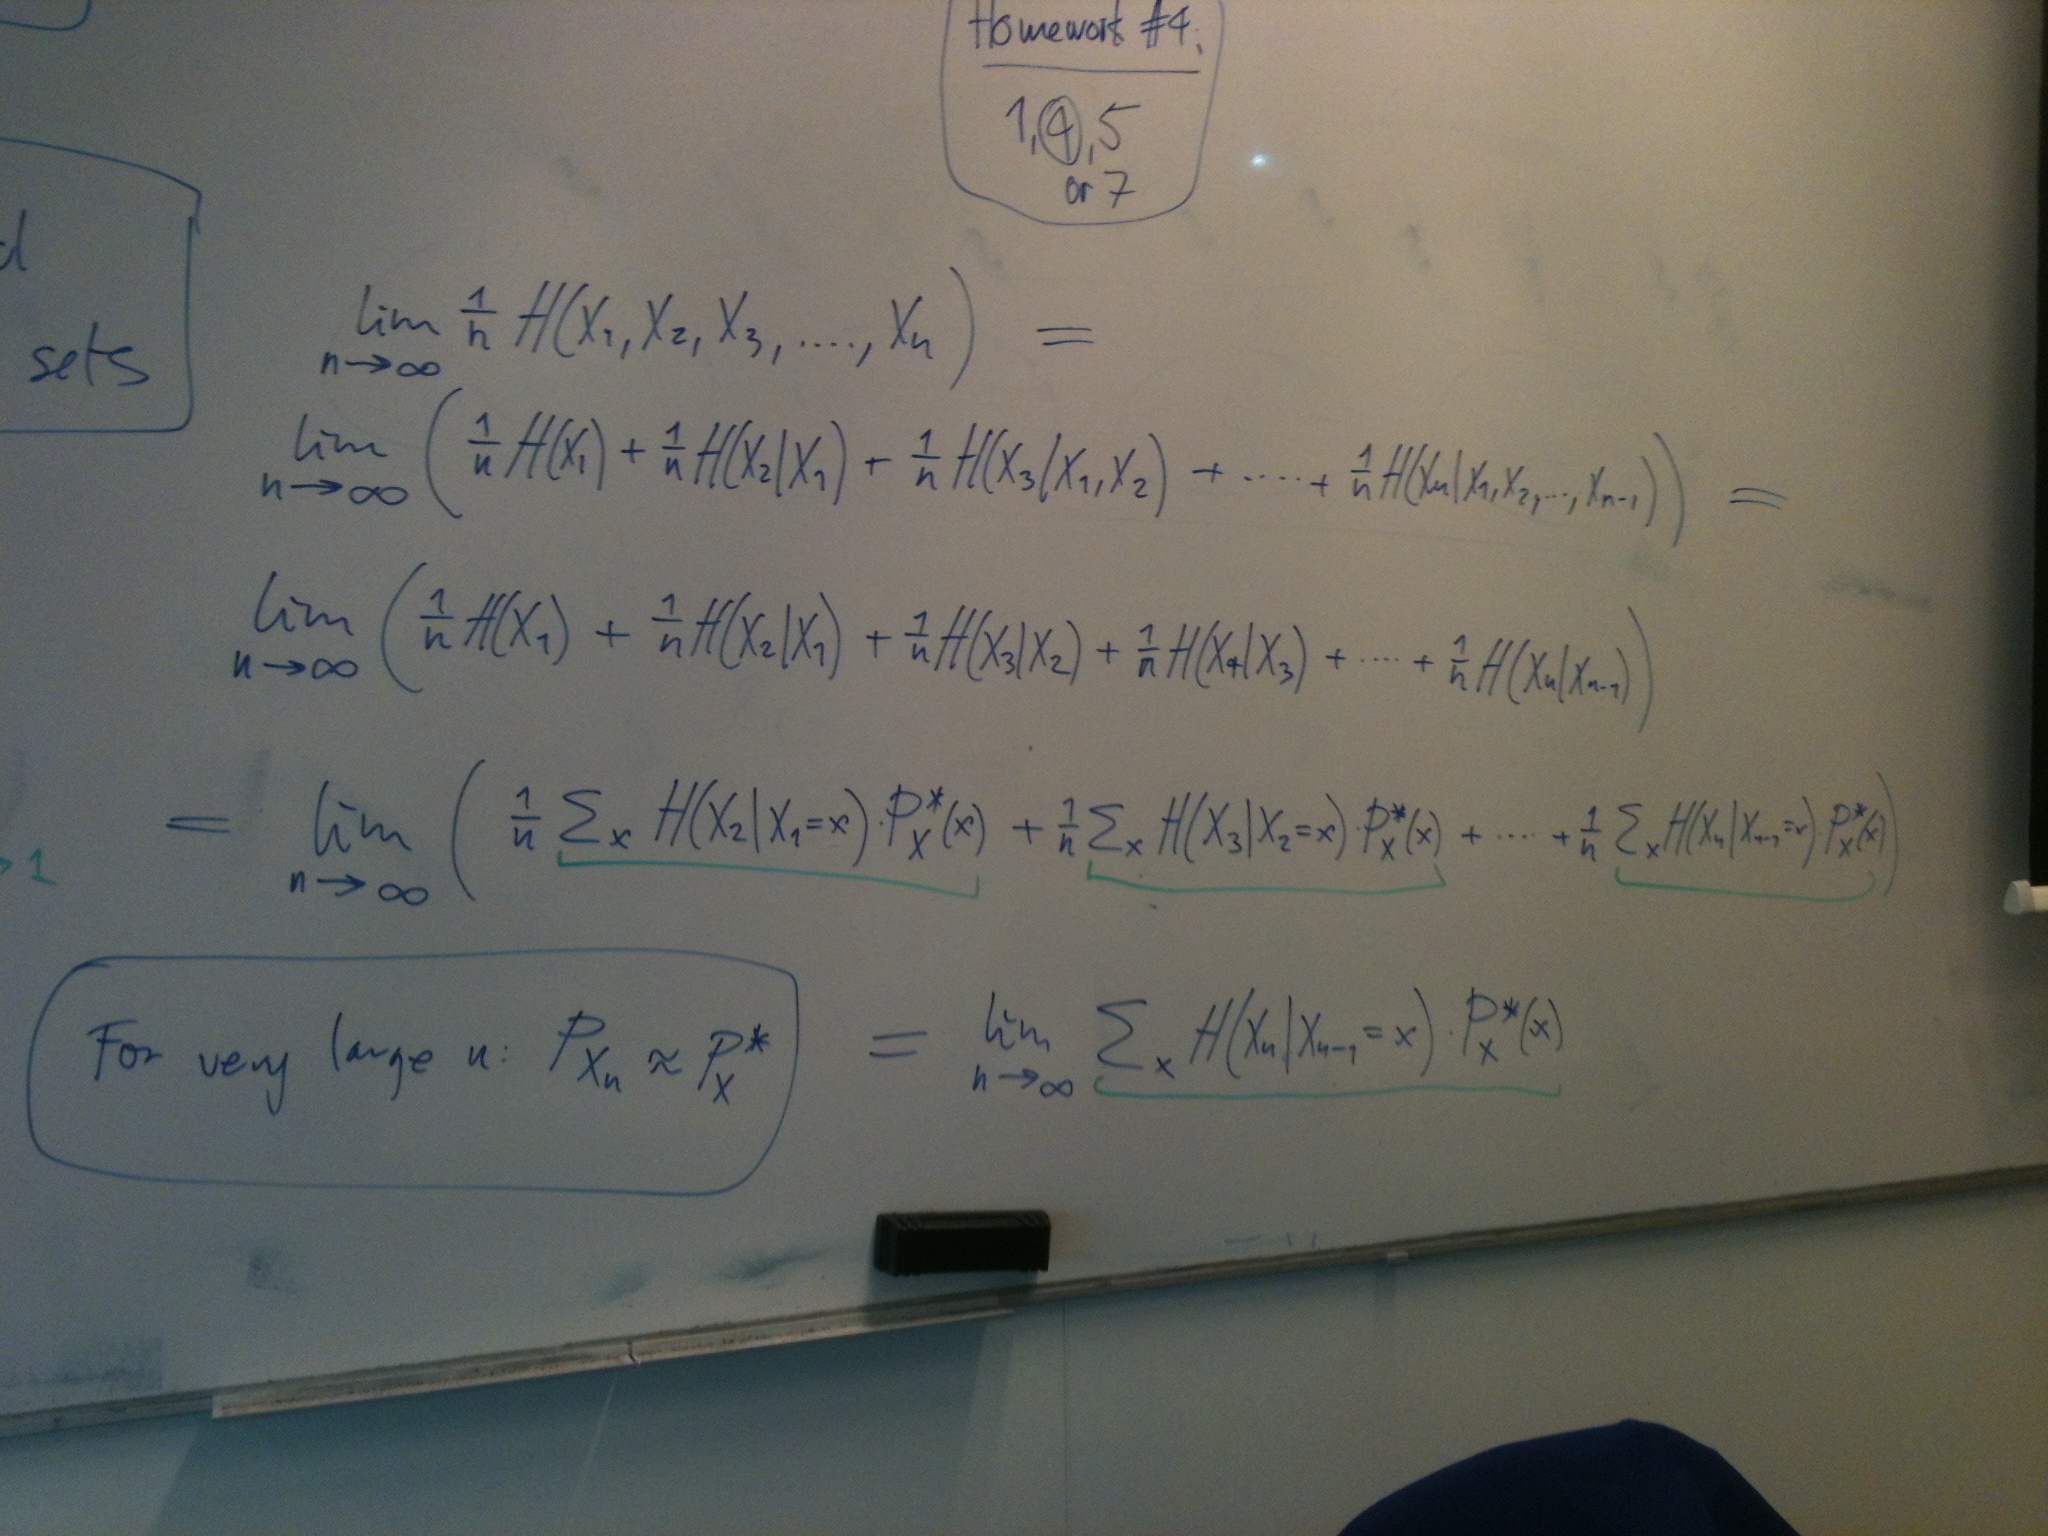 Homework #4.
1, 4, 5
or 7
d
sets
lim n→∞ 1/n H(X₁, X₂, X₃, ...., Xₙ) =
lim n→∞ ( 1/n H(X₁) + 1/n H(X₂|X₁) + 1/n H(X₃|X₁,X₂) + ..... + 1/n H(Xₙ|X₁,X₂,...,Xₙ₋₁) ) =
lim n→∞ ( 1/n H(X₁) + 1/n H(X₂|X₁) + 1/n H(X₃|X₂) + 1/n H(X₄|X₃) + .... + 1/n H(Xₙ|Xₙ₋₁) )
= lim n→∞ ( 1/n Σₓ H(X₂|X₁=x)·P*_X(x) + 1/n Σₓ H(X₃|X₂=x)·P*_X(x) + .... + 1/n Σₓ H(Xₙ|Xₙ₋₁=x)·P*_X(x) )
→ 1
For very large n: P_Xₙ ≈ P*_X
= lim n→∞ Σₓ H(Xₙ|Xₙ₋₁=x)·P*_X(x)